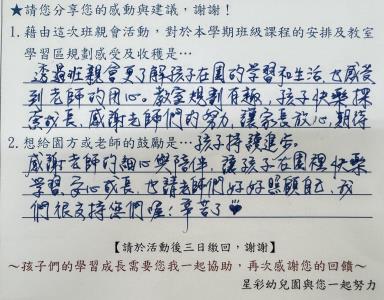 ★請您分享您的感動與建議，謝謝！
1. 藉由這次班親會活動，對於本學期班級課程的安排及教室
學習區規劃感受及收穫是…
透過班親會更了解孩子在園的學習和生活，也感受
到老師的用心。教室規劃有趣，孩子快樂探
索成長，感謝老師們的努力，讓家長放心，期待
2. 想給園方或老師的鼓勵是…孩子持續進步。
感謝老師的細心與陪伴，讓孩子在園裡快樂
學習、安心成長，也請老師們好好照顧自己，我
們很支持您們喔！辛苦了♥
【請於活動後三日繳回，謝謝】
～孩子們的學習成長需要您我一起協助，再次感謝您的回饋～
星彩幼兒園與您一起努力